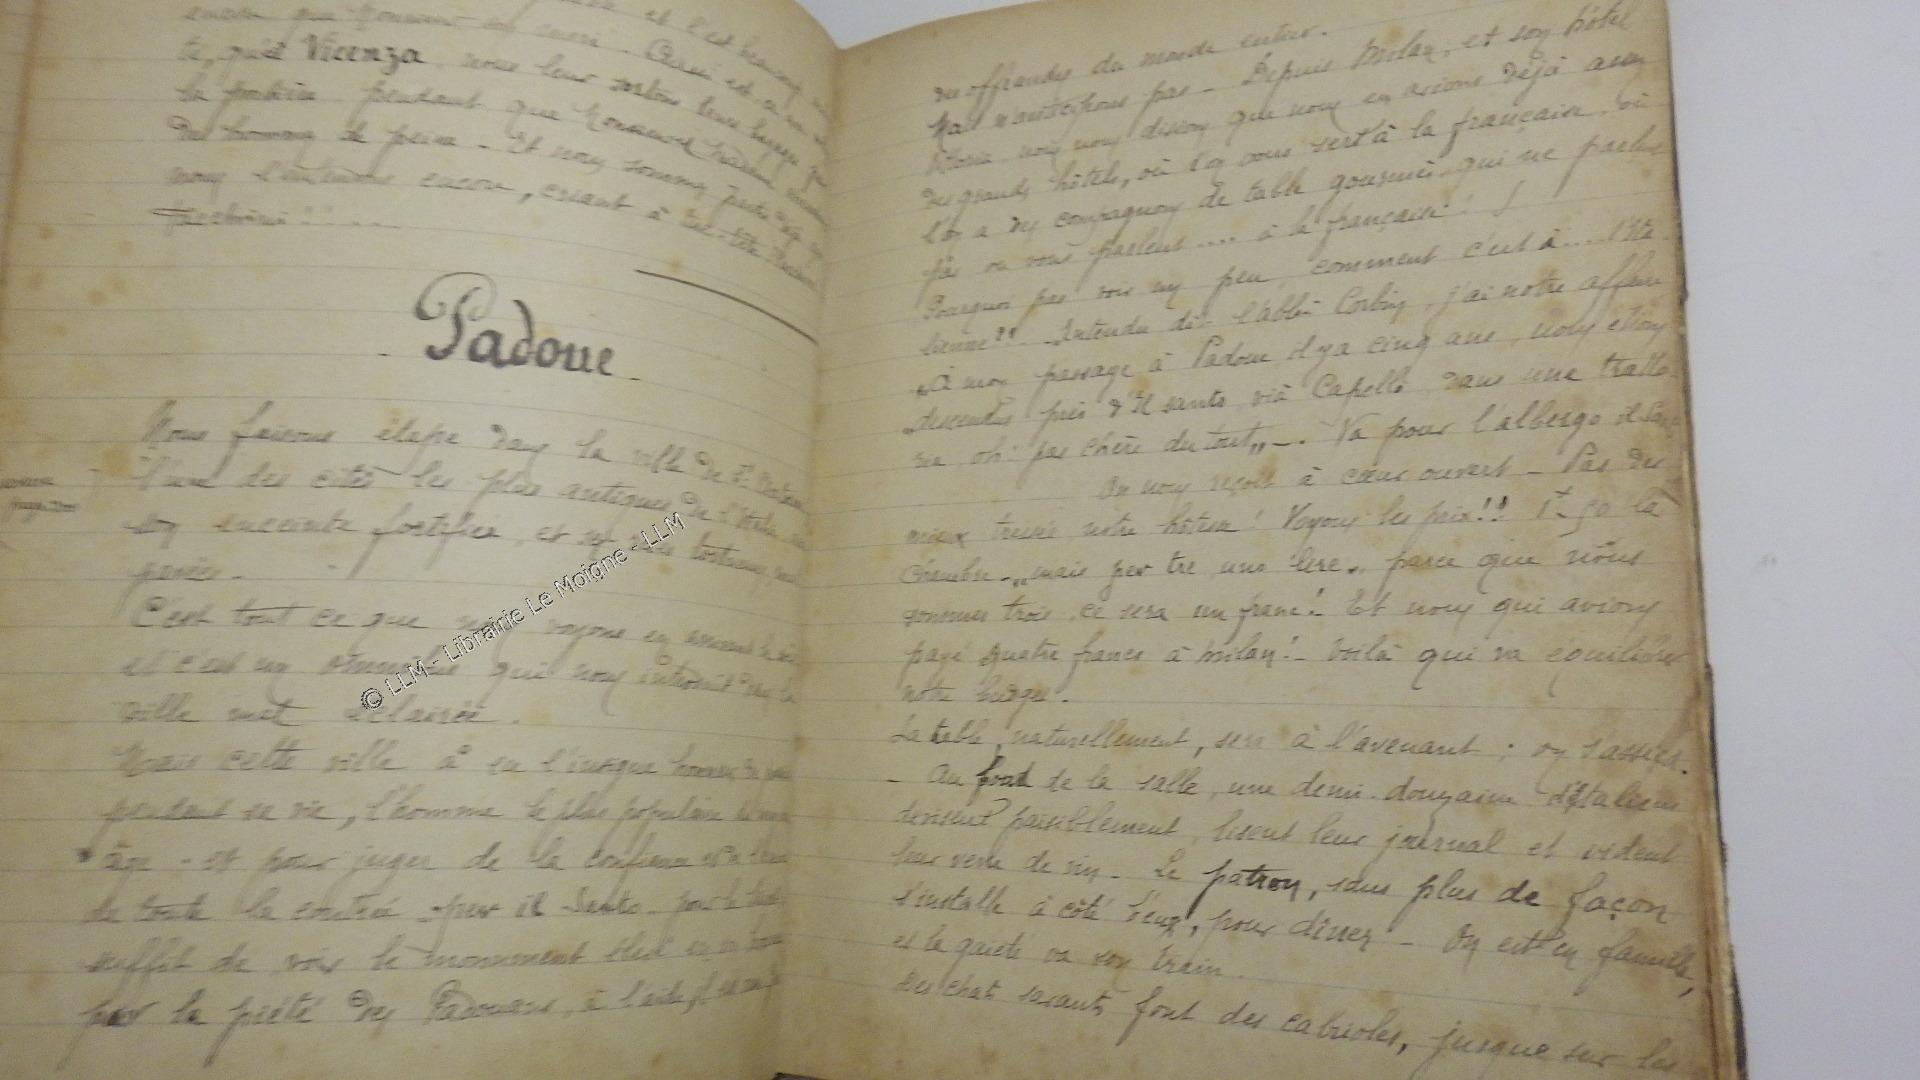 encore que Monsieur son mari. Aussi est-ce
te, qu'à Vicenza, nous leur sortons leurs bagages
la portière pendant que Monsieur
des hommes de peine - Et nous sommes partis
nous l'entendons encore, criant à tue-tête
facchini!! ....
Padoue
Nous faisons étape dans la ville de St
l'une des cités les plus antiques de l'Italie
son enceinte fortifiée, et ses rues tortueuses
pavées.
C'est tout ce que nous voyons en
et c'est un omnibus qui nous introduit dans la
ville mal éclairée.
Mais cette ville a eu l'insigne honneur de
pendant sa vie, l'homme le plus populaire
âge - et pour juger de la confiance
de toute la contrée "per il Santo" pour le Saint
suffit de voir le monument élevé en
par la piété des Padouans, à l'aide
des offrandes du monde entier.
Mais n'anticipons pas - Depuis Milan, et son hôtel
nous nous disions que nous en avions déjà assez
des grands hôtels, où l'on vous sert à la française, où
l'on a des compagnons de table gourmés, qui ne parlent
pas ou vous parlent .... à la française!
Pourquoi pas voir un peu, comment c'est à .... l'Ita-
lienne?? - Entendu dit l'abbé Corbin, j'ai notre affaire
"A mon passage à Padoue, il y a cinq ans, nous étions
descendus près d'Il Santo, via Capello, dans une tratto-
ria, oh! pas chère du tout" -. Va pour l'albergo il Santo
On nous reçoit à cœur ouvert - Pas des
mieux tenue notre hôtesse! Voyons les prix!! 1f 50 la
chambre - "mais per tre una lire", parce que nous
sommes trois, ce sera un franc! Et nous qui avions
payé quatre francs à Milan! - Voilà qui va équilibrer
notre budget.
La table, naturellement, sera à l'avenant ; on s'assied.
- Au fond de la salle, une demi-douzaine d'Italiens
devisent paisiblement, lisent leur journal et vident
leur verre de vin - Le patron, sans plus de façon
s'installe à côté d'eux, pour dîner - On est en famille,
et la gaieté va son train.
Des chats savants font des cabrioles, jusque sur les
© LLM - Librairie Le Moigne - LLM